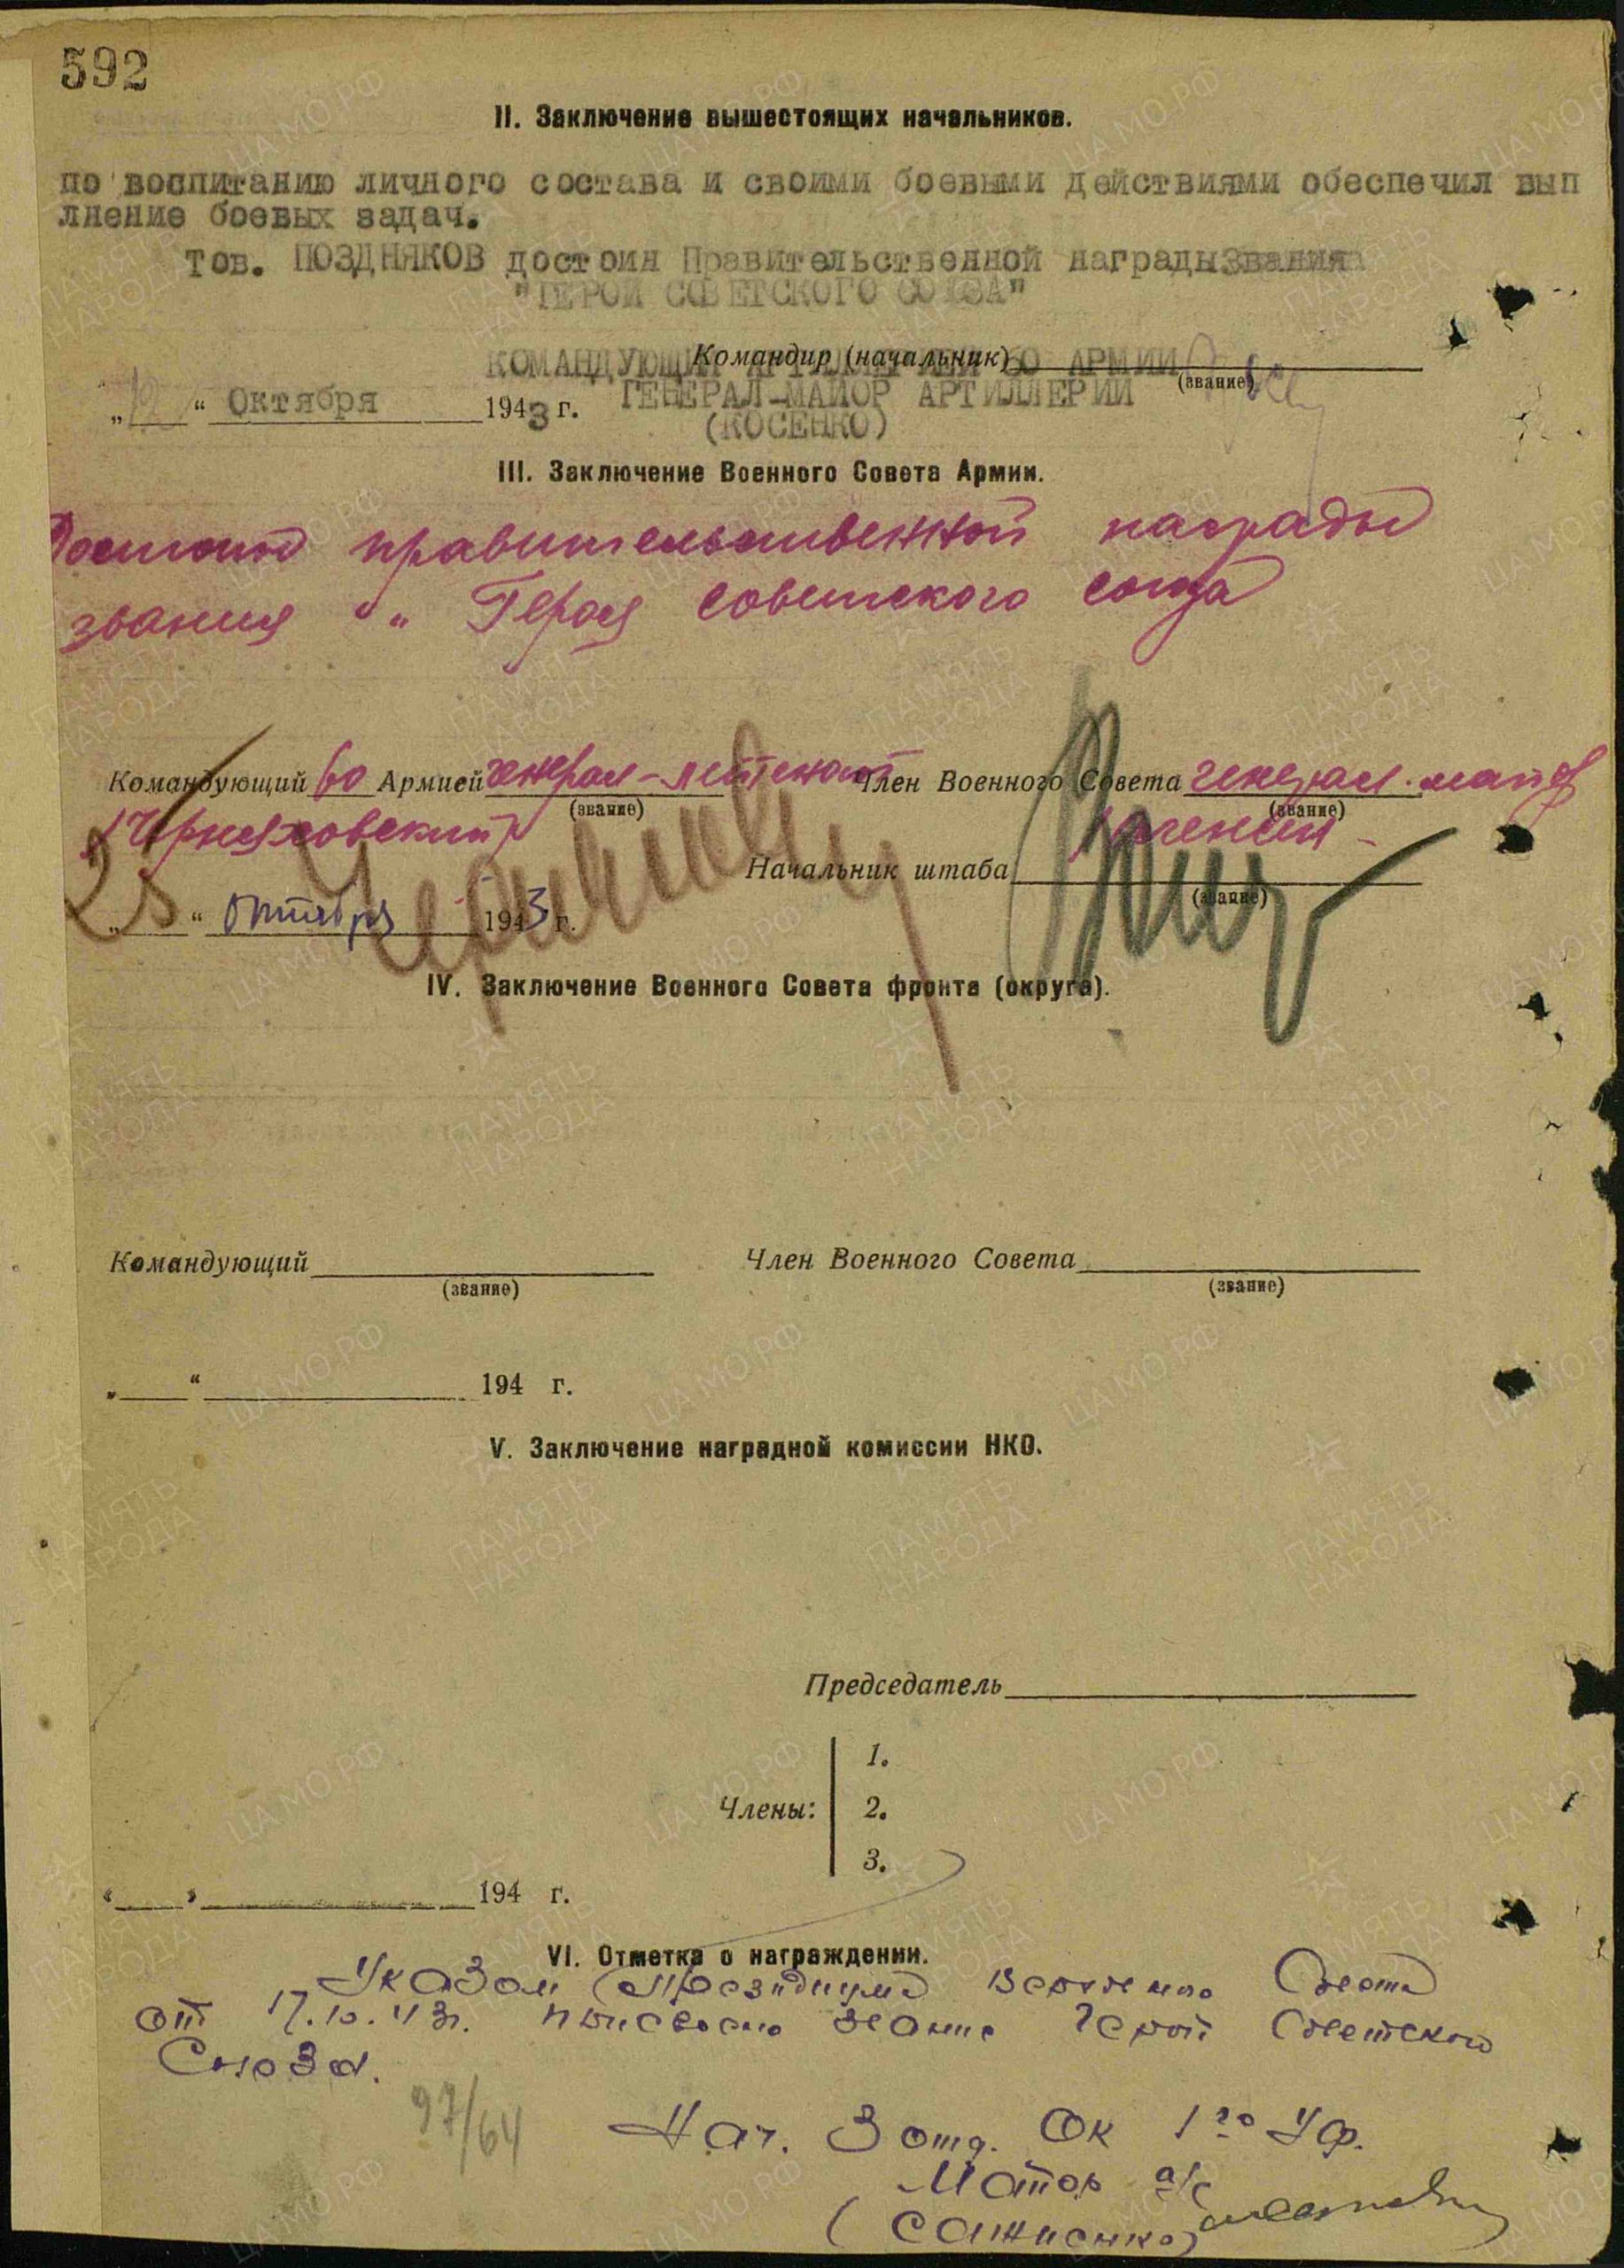 592
II. Заключение вышестоящих начальников.
по воспитанию личного состава и своими боевыми действиями обеспечил вып
лнение боевых задач.
Тов. ПОЗДНЯКОВ достоин Правительственной награды звания
"ГЕРОЙ СОВЕТСКОГО СОЮЗА"
Командир (начальник)
КОМАНДУЮЩИЙ АРТИЛЛЕРИЕЙ 60 АРМИИ
(звание)
ГЕНЕРАЛ-МАЙОР АРТИЛЛЕРИИ
„12“ Октября 1943 г.
(КОСЕНКО)
III. Заключение Военного Совета Армии.
Достоин правительственной награды
звания „ Героя Советского союза
Командующий 60 Армией генерал-лейтенант Член Военного Совета генерал-майор
(звание) (звание)
/Черняховский/
Начальник штаба
(звание)
„25“ октября 1943 г.
IV. Заключение Военного Совета фронта (округа).
Командующий Член Военного Совета
(звание) (звание)
„ “ 194 г.
V. Заключение наградной комиссии НКО.
Председатель
Члены:
1.
2.
3.
„ “ 194 г.
VI. Отметка о награждении.
Указом Президиума Верховного Совета
от 17.10.43г. присвоено звание Герой Советского
Союза.
97/64
Нач. 3 отд. ОК 1го Уф.
Майор а/с